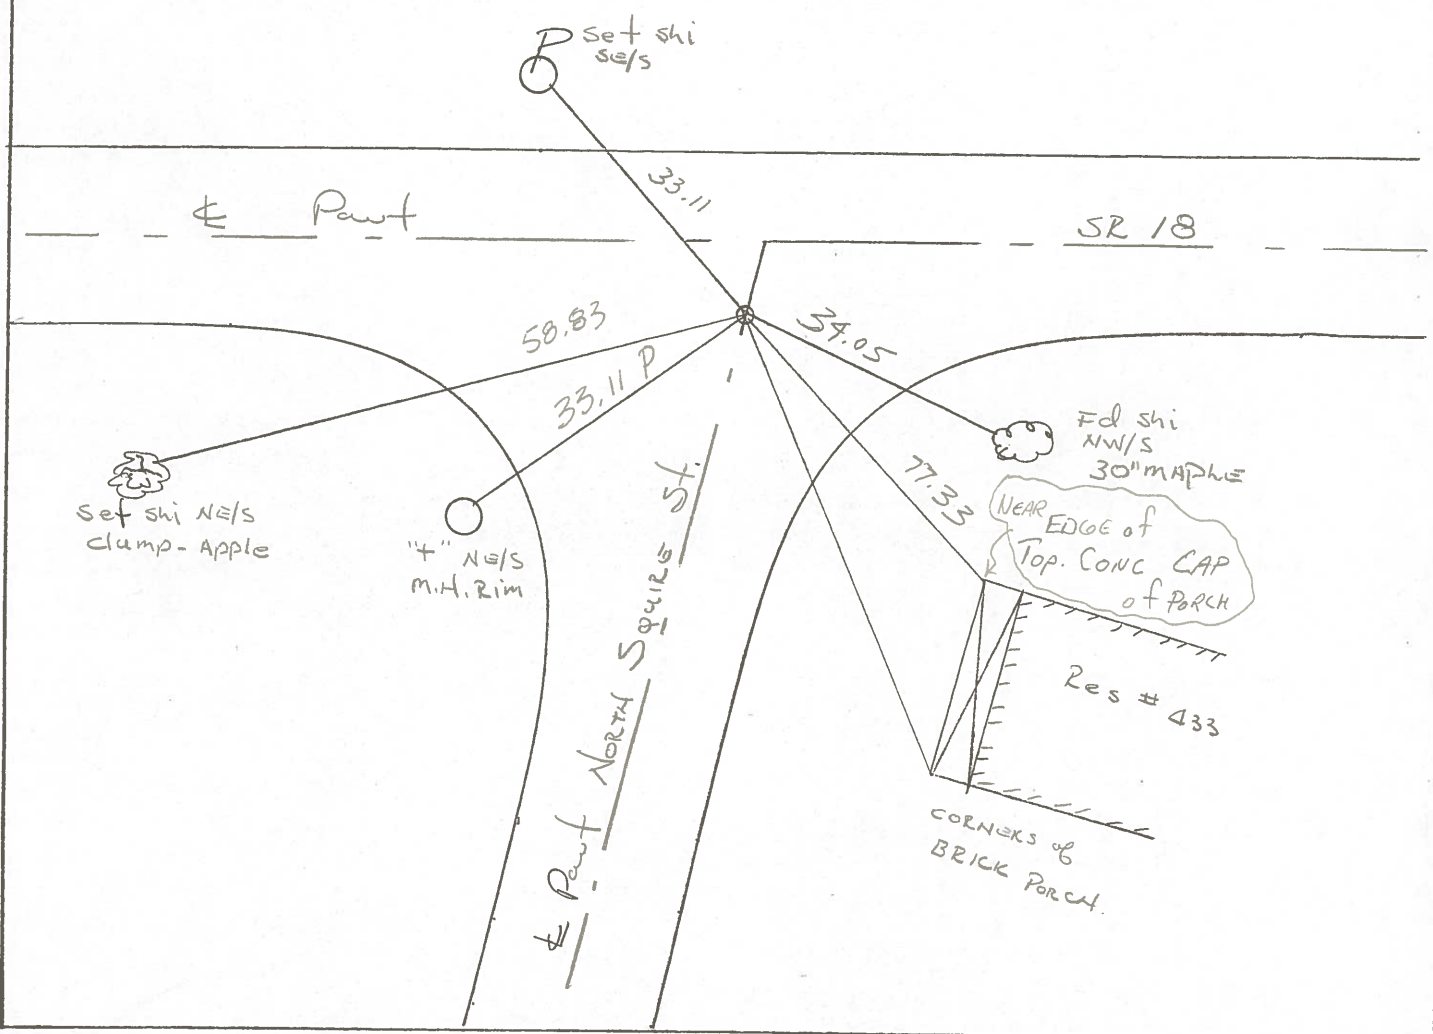 P
set shi
SE/S
33.11
℄ Pavt
SR 18
58.83
33.11 P
34.05
77.33
Fd shi
NW/S
30" MAPLE
set shi NE/S
clump-Apple
"+" NE/S
M.H. Rim
NEAR
EDGE of
Top. CONC CAP
of PORCH
Res # 433
CORNERS of
BRICK PORCH.
℄ Pavt NORTH SQUIRE St.